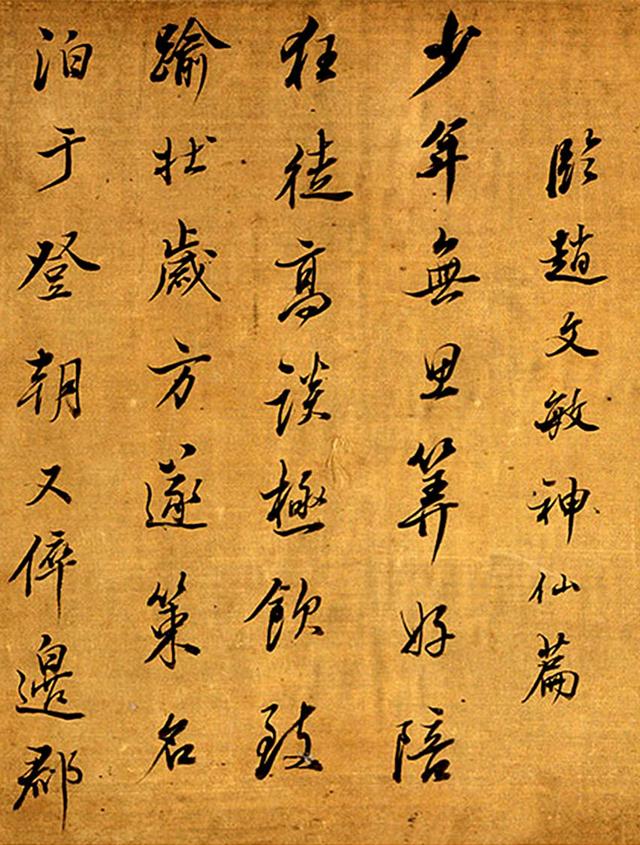 臨趙文敏神仙篇
少年無思筭好陪
狂徒高談極飲致
踰壯歲方遂策名
泊于登朝又倅邊郡